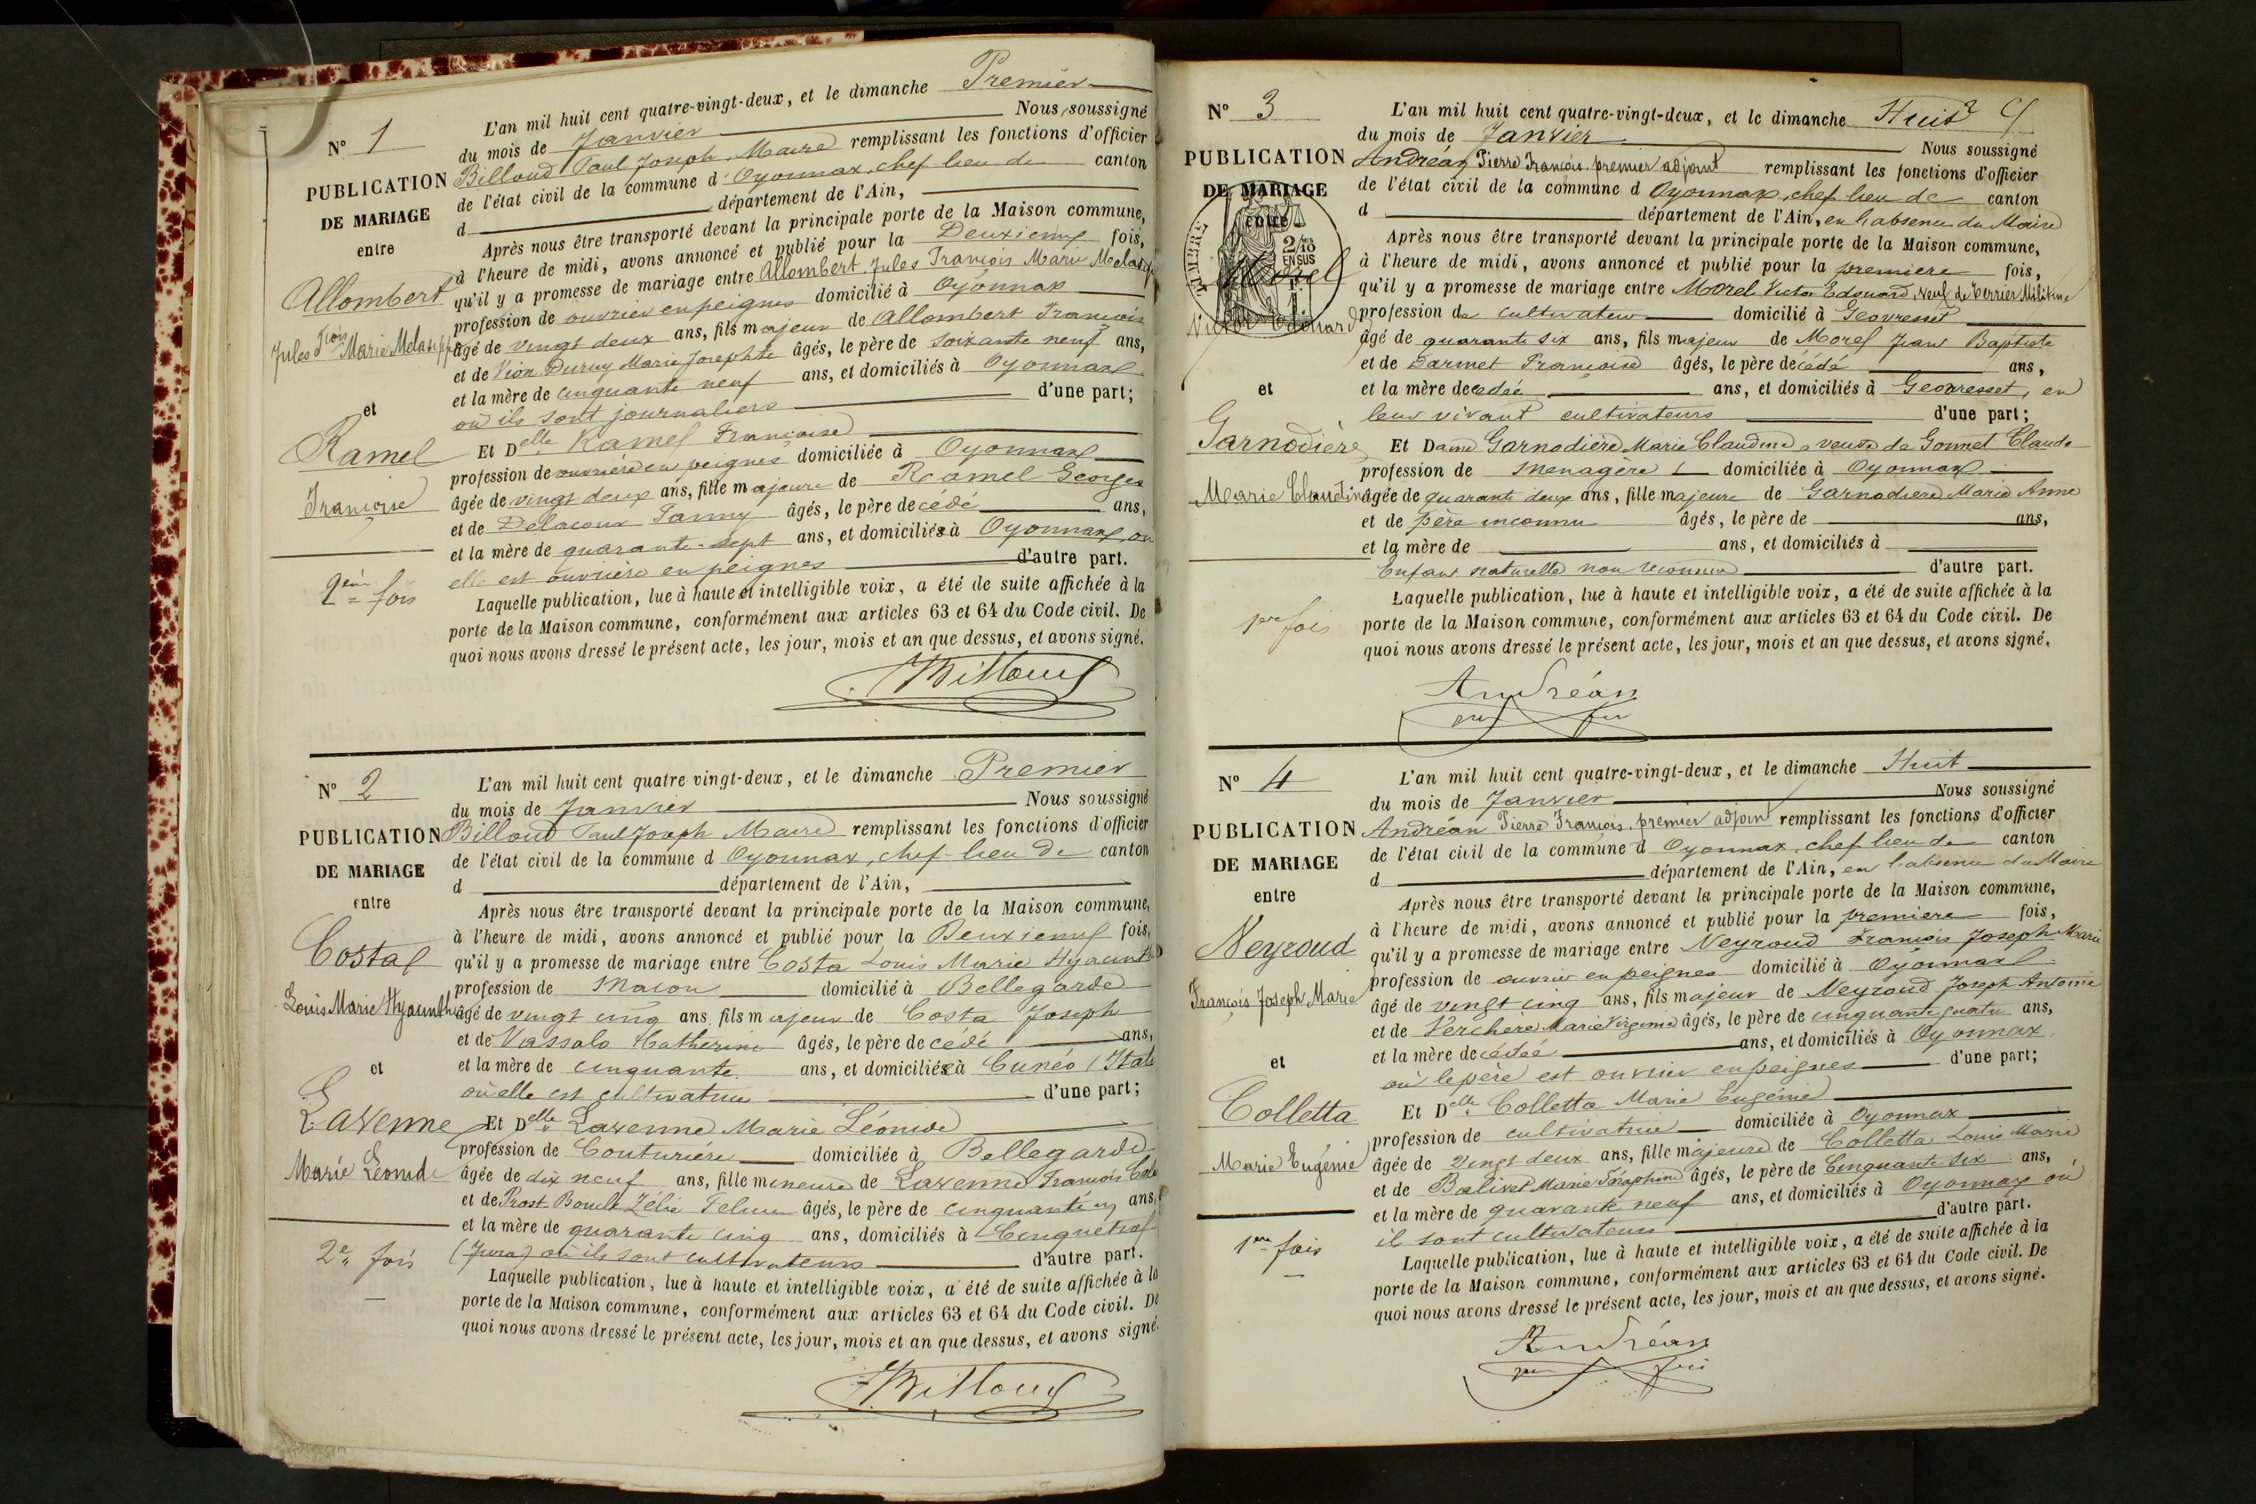 N° 1
PUBLICATION
DE MARIAGE
entre
Allombert
Jules Frois Marie Melasippe
et
Ramel
Françoise
2ème fois
L'an mil huit cent quatre-vingt-deux, et le dimanche Premier
du mois de Janvier Nous soussigné
Billoud Paul Joseph, Maire remplissant les fonctions d'officier
de l'état civil de la commune d'Oyonnax, chef lieu de canton
d département de l'Ain,
Après nous être transporté devant la principale porte de la Maison commune,
à l'heure de midi, avons annoncé et publié pour la Deuxième fois,
qu'il y a promesse de mariage entre Allombert Jules François Marie
profession de ouvrier en peignes domicilié à Oyonnax
âgé de vingt deux ans, fils majeur de Allombert François
et de Vion Duruy Marie Josephte âgés, le père de soixante neuf ans,
et la mère de cinquante neuf ans, et domiciliés à Oyonnax
où ils sont journaliers d'une part;
Et Delle Ramel Françoise
profession de ouvrière en peignes domiciliée à Oyonnax
âgée de vingt deux ans, fille majeure de Ramel Georges
et de Delacour Fanny âgés, le père décédé ans,
et la mère de quarante-sept ans, et domiciliés à Oyonnax, où
elle est ouvrière en peignes d'autre part.
Laquelle publication, lue à haute et intelligible voix, a été de suite affichée à la
porte de la Maison commune, conformément aux articles 63 et 64 du Code civil. De
quoi nous avons dressé le présent acte, les jour, mois et an que dessus, et avons signé.
Billoud
N° 2
PUBLICATION
DE MARIAGE
entre
Costa
Louis Marie Hyacinthe
et
Lavenne
Marie Léonide
2e fois
L'an mil huit cent quatre vingt-deux, et le dimanche Premier
du mois de Janvier Nous soussigné
Billoud Paul Joseph Maire remplissant les fonctions d'officier
de l'état civil de la commune d Oyonnax, chef-lieu de canton
d département de l'Ain,
Après nous être transporté devant la principale porte de la Maison commune,
à l'heure de midi, avons annoncé et publié pour la Deuxième fois,
qu'il y a promesse de mariage entre Costa Louis Marie Hyacinthe
profession de Maçon domicilié à Bellegarde
âgé de vingt cinq ans fils majeur de Costa Joseph
et de Vassalo Catherine âgés, le père décédé ans,
et la mère de cinquante ans, et domiciliés à Cunéo (Italie
où elle est cultivatrice d'une part;
Et Delle Lavenne Marie Léonide
profession de Couturière domiciliée à Bellegarde
âgée de dix neuf ans, fille mineure de Lavenne François
et de Prost Zélie âgés, le père de cinquante un ans,
et la mère de quarante cinq ans, domiciliés à
(Jura) où ils sont cultivateurs d'autre part.
Laquelle publication, lue à haute et intelligible voix, a été de suite affichée à la
porte de la Maison commune, conformément aux articles 63 et 64 du Code civil. De
quoi nous avons dressé le présent acte, les jour, mois et an que dessus, et avons signé.
Billoud
N° 3
PUBLICATION
DE MARIAGE
entre
TIMBRE
2/10
EN SUS
Morel
Victor Edouard
et
Garnodière
Marie Claudine
1ere fois
2
L'an mil huit cent quatre-vingt-deux, et le dimanche Huit
du mois de Janvier Nous soussigné
Andréan Pierre François premier adjoint remplissant les fonctions d'officier
de l'état civil de la commune d Oyonnax, chef lieu de canton
d département de l'Ain, en l'absence du Maire
Après nous être transporté devant la principale porte de la Maison commune,
à l'heure de midi, avons annoncé et publié pour la première fois,
qu'il y a promesse de mariage entre Morel Victor Edouard, veuf de Verrier
profession de cultivateur domicilié à Geovresset
âgé de quarante six ans, fils majeur de Morel Jean Baptiste
et de Darmet Françoise âgés, le père décédé ans,
et la mère decedée ans, et domiciliés à Geovresset, en
leur vivant cultivateurs d'une part;
Et Dame Garnodière Marie Claudine, veuve de Gonnet Claude
profession de menagère domiciliée à Oyonnax
âgée de quarante deux ans, fille majeure de Garnodière Marie Anne
et de père inconnu âgés, le père de ans,
et la mère de ans, et domiciliés à
Enfant naturelle non reconnue d'autre part.
Laquelle publication, lue à haute et intelligible voix, a été de suite affichée à la
porte de la Maison commune, conformément aux articles 63 et 64 du Code civil. De
quoi nous avons dressé le présent acte, les jour, mois et an que dessus, et avons signé.
Andréan
N° 4
PUBLICATION
DE MARIAGE
entre
Neyroud
François Joseph Marie
et
Colletta
Marie Eugénie
1ere fois
L'an mil huit cent quatre-vingt-deux, et le dimanche Huit
du mois de Janvier Nous soussigné
Andréan Pierre François, premier adjoint remplissant les fonctions d'officier
de l'état civil de la commune d Oyonnax, chef lieu de canton
d département de l'Ain, en l'absence du Maire
Après nous être transporté devant la principale porte de la Maison commune,
à l'heure de midi, avons annoncé et publié pour la première fois,
qu'il y a promesse de mariage entre Neyroud François Joseph Marie
profession de ouvrier en peignes domicilié à Oyonnax
âgé de vingt cinq ans, fils majeur de Neyroud Joseph Antoine
et de Verchère Marie Virginie âgés, le père de cinquante quatre ans,
et la mère décédée ans, et domiciliés à Oyonnax
où le père est ouvrier en peignes d'une part;
Et Delle Colletta Marie Eugénie
profession de cultivatrice domiciliée à Oyonnax
âgée de vingt deux ans, fille majeure de Colletta Louis Marie
et de Balivet Marie Séraphine âgés, le père de Cinquante six ans,
et la mère de quarante neuf ans, et domiciliés à Oyonnax où
il sont cultivateurs d'autre part.
Laquelle publication, lue à haute et intelligible voix, a été de suite affichée à la
porte de la Maison commune, conformément aux articles 63 et 64 du Code civil. De
quoi nous avons dressé le présent acte, les jour, mois et an que dessus, et avons signé.
Andréan